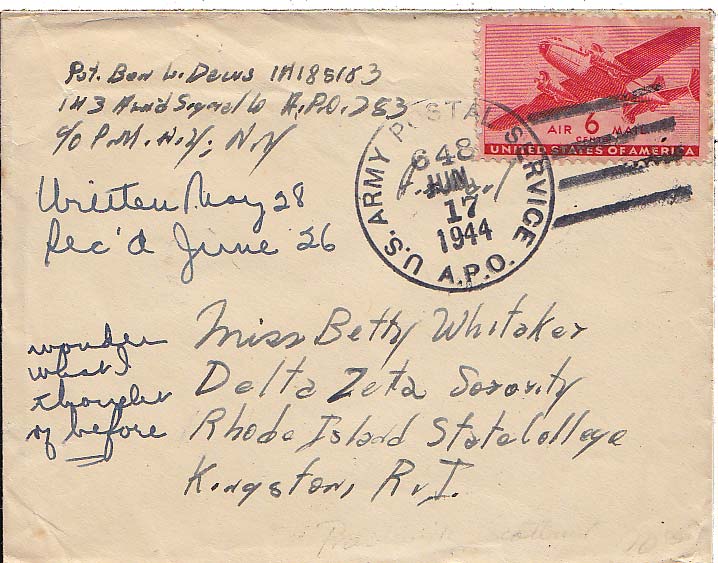 Pvt. Ben W. Dews 11185183
143 Arm'd Signal Co A.P.O. 253
c/o P.M. N.Y., N.Y
Written May 28
Rec'd June 26
U.S. ARMY POSTAL SERVICE
648
JUN
17
1944
A.P.O.
AIR 6 MAIL
CENTS
UNITED STATES OF AMERICA
wonder
what I
thought
of before
Miss Betty Whitaker
Delta Zeta Sorority
Rhode Island State College
Kingston, R.I.